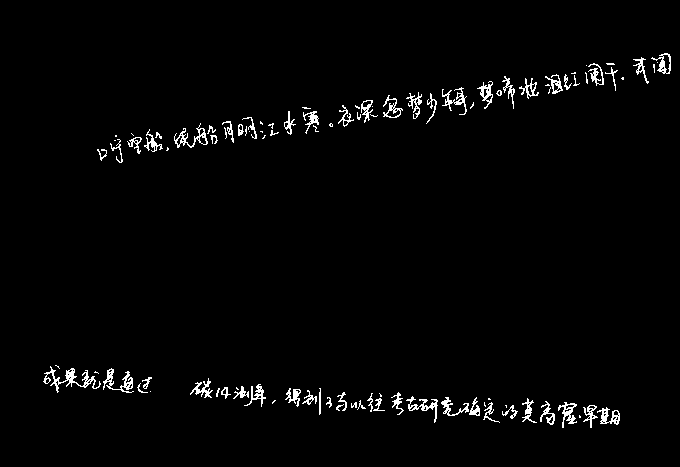 口守空船,绕船月明江水寒。夜深忽梦少年事,梦啼妆泪红阑干。我闻
成果就是通过 碳14测年,得到了与以往考古研究确定的莫高窟早期